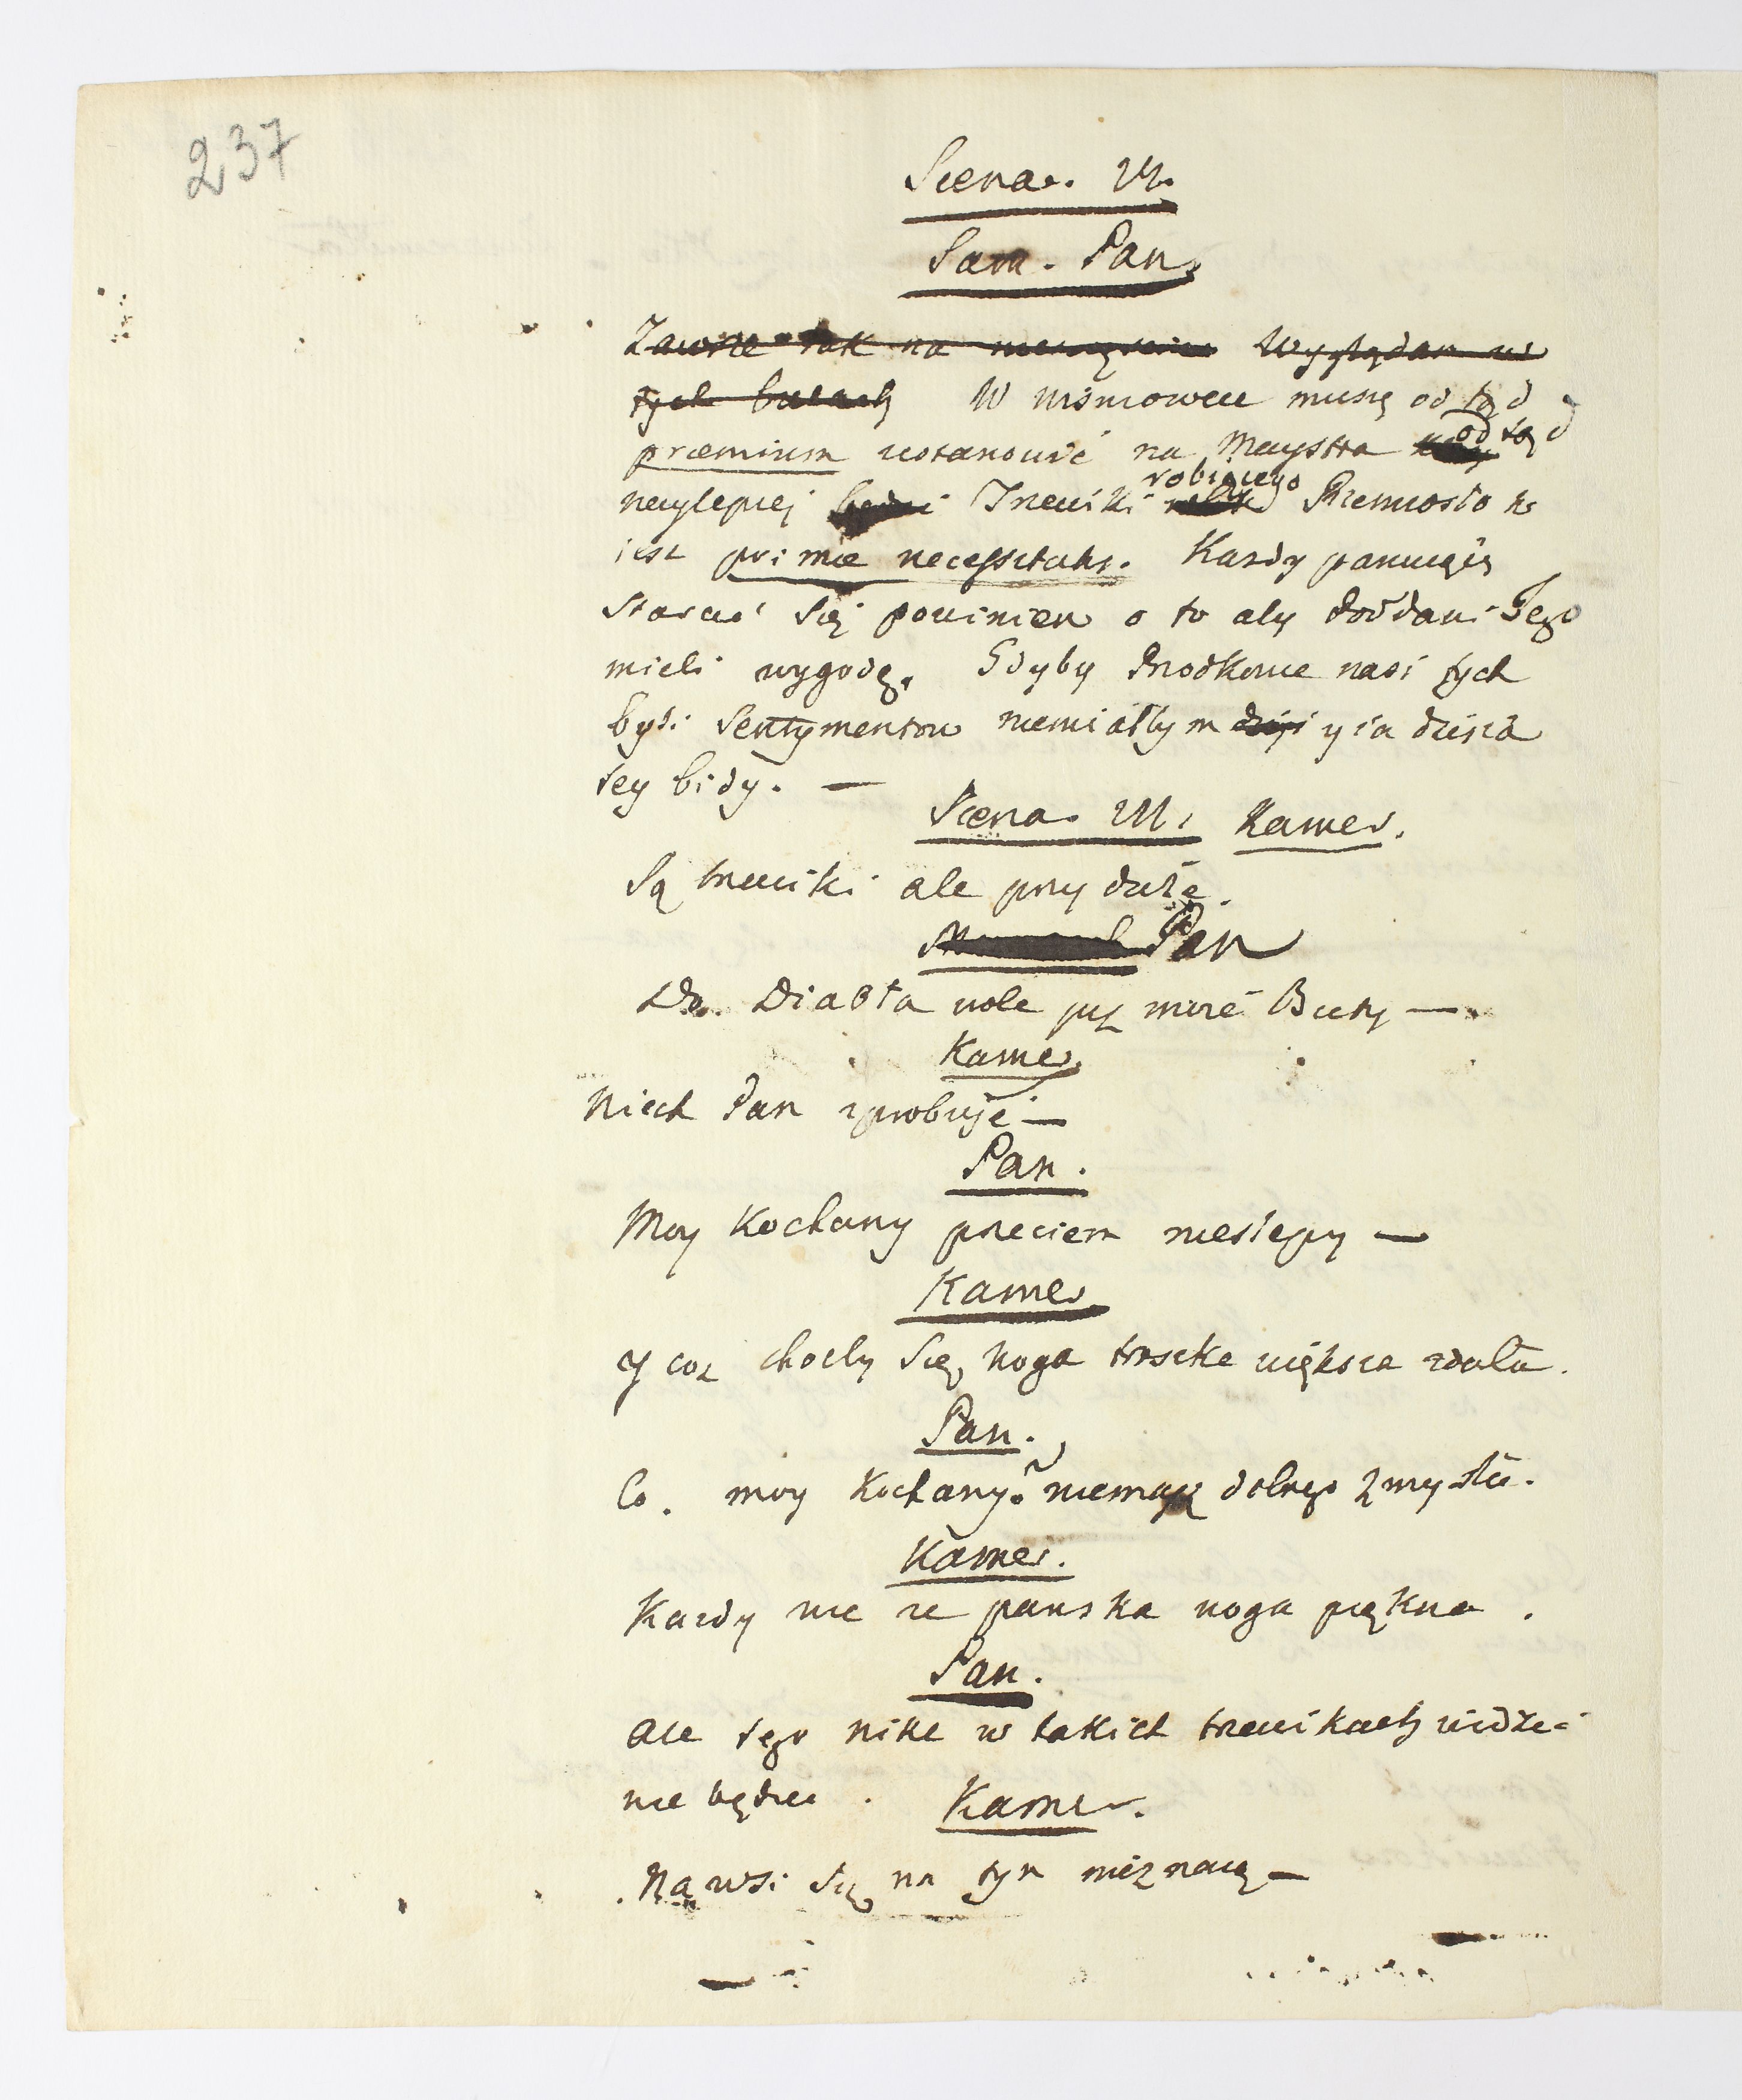 237
Scena. VI.
Sam. Pan.
Zawsze tak na Wyglądam w
tych butach W Wisniowcu muszę od tąd
præmium ustanowić na Maystra od tąd
naylepiej Trzewiki robiącego Rzemiosło to
iest primæ necessitatis. Kazdy panuiący
starać się powinien o to aby Poddani Jego
mieli wygodę. Gdyby Przodkowie nasi tych
byli Sentymentow niemiałbym y ia dzisia
tey bidy. —
Scena. VII. Kamer.
Są trzewiki ale przyduże.
Pan
Do Diabła wole juz mieć Buty —
Kamer.
Niech Pan sprobuje —
Pan.
Moy Kochany przeciem nieslepy —
Kamer
Y coz choćby Się noga troszke większa zdała.
Pan.
Co. moy Kochany? niemasz dobrego zmysłu.
Kamer.
Kazdy wie ze panska noga piękna.
Pan.
Ale tego nikt w takich trzewikach widzieć
nie będzie. Kamer.
Na wsi Się na tym nieznaią —